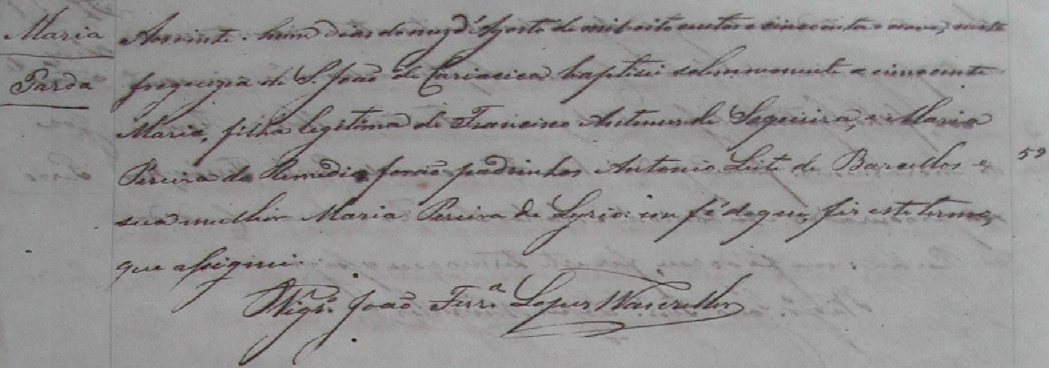 Maria
Parda
Aos vinte e hum dias do mez d'Agosto de mil oito centos e cincoenta e nove, nesta
freguezia de S. João de Cariacica baptisei solemnemente a innocente
Maria, filha legitima de Francisco Antunes de Sequeira, e Maria
Pereira do Remedio forão padrinhos Antonio Leite de Barcellos e
sua mulher Maria Pereira de Lyrio: em fé do que, fiz este termo,
que assignei.
Vigr.º João Ferr.ª Lopes
59